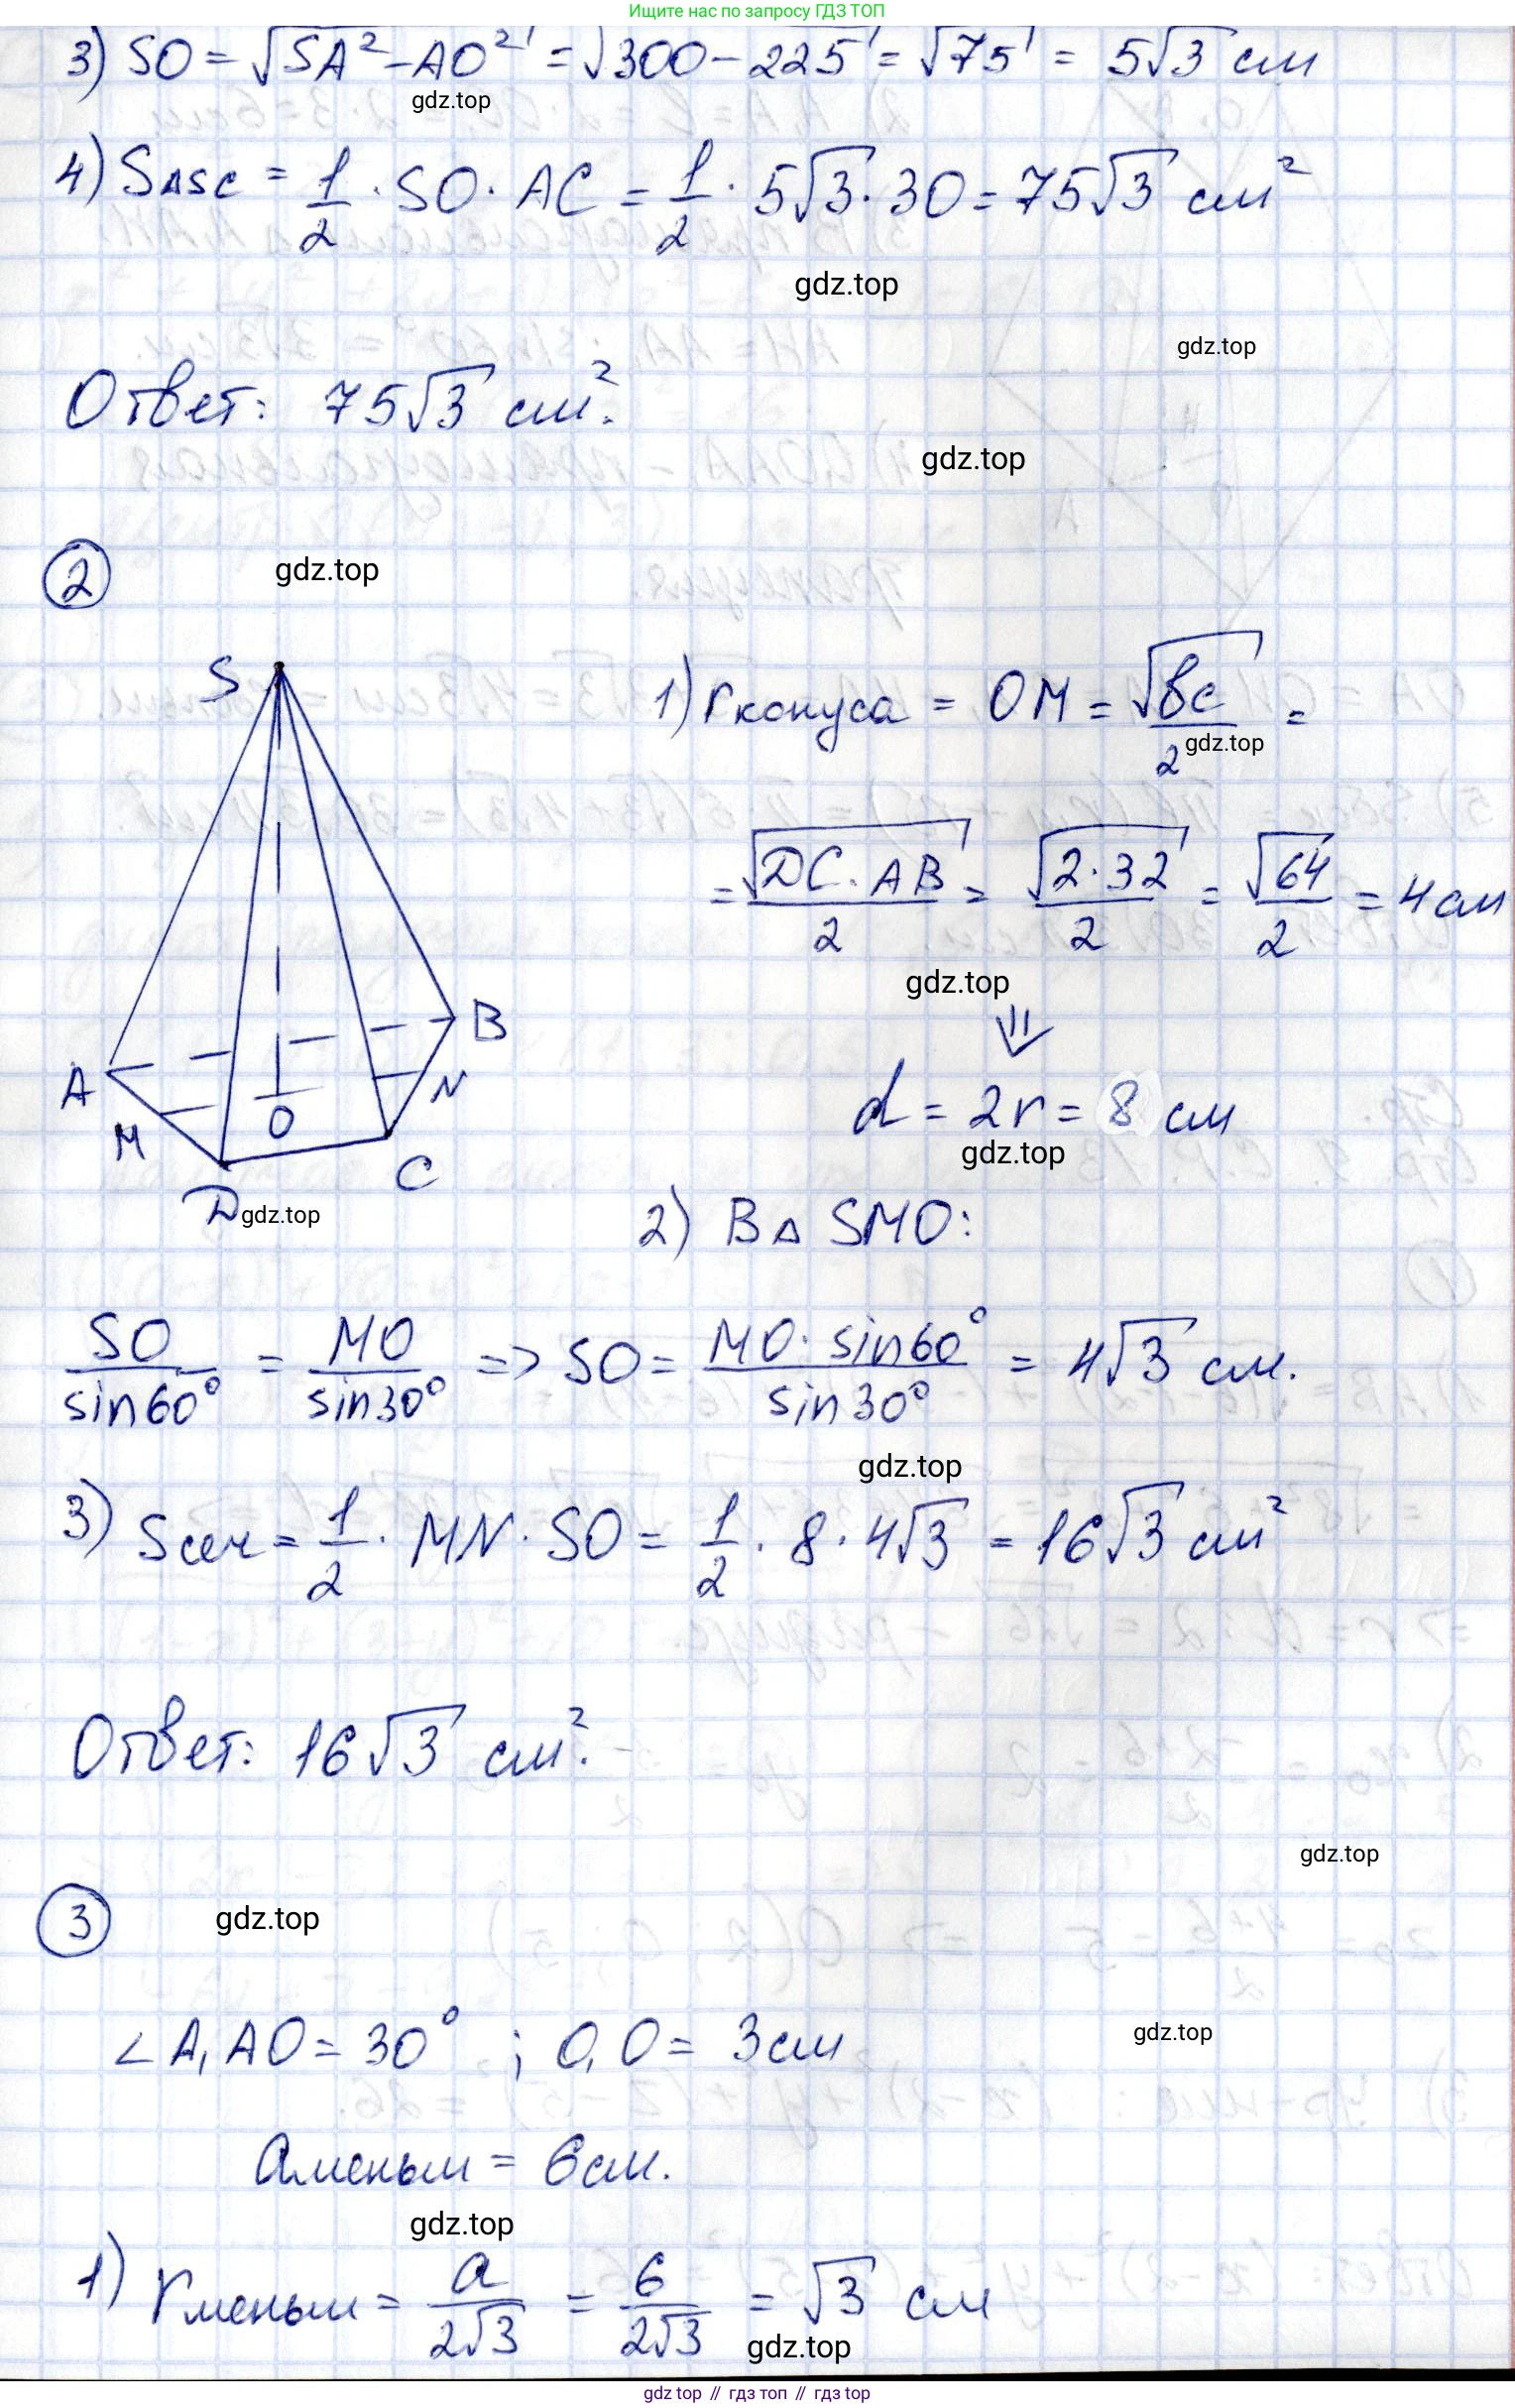 Ищите нас по запросу ГДЗ ТОП
3) SO = √(SA² - AO²) = √(300 - 225) = √75 = 5√3 см
gdz.top
4) S∆ASC = 1/2 · SO · AC = 1/2 · 5√3 · 30 = 75√3 см²
gdz.top
gdz.top
Ответ: 75√3 см².
gdz.top
2
gdz.top
S
1) rконуса = OM = √(bc)/2 =
gdz.top
= √(DC · AB)/2 = √(2·32)/2 = √64/2 = 4 см
gdz.top
A
B
M
O
N
D
C
gdz.top
⇓
d = 2r = 8 см
gdz.top
2) В ∆ SMO:
SO/sin60° = MO/sin30° => SO = MO · sin60°/sin30° = 4√3 см.
gdz.top
3) Sсеч = 1/2 · MN · SO = 1/2 · 8 · 4√3 = 16√3 см²
Ответ: 16√3 см².
gdz.top
3
gdz.top
∠A₁AO = 30° ; O₁O = 3 см
gdz.top
aменьш = 6 см.
gdz.top
1) rменьш = a/2√3 = 6/2√3 = √3 см
gdz.top
gdz top // гдз топ // gdz top